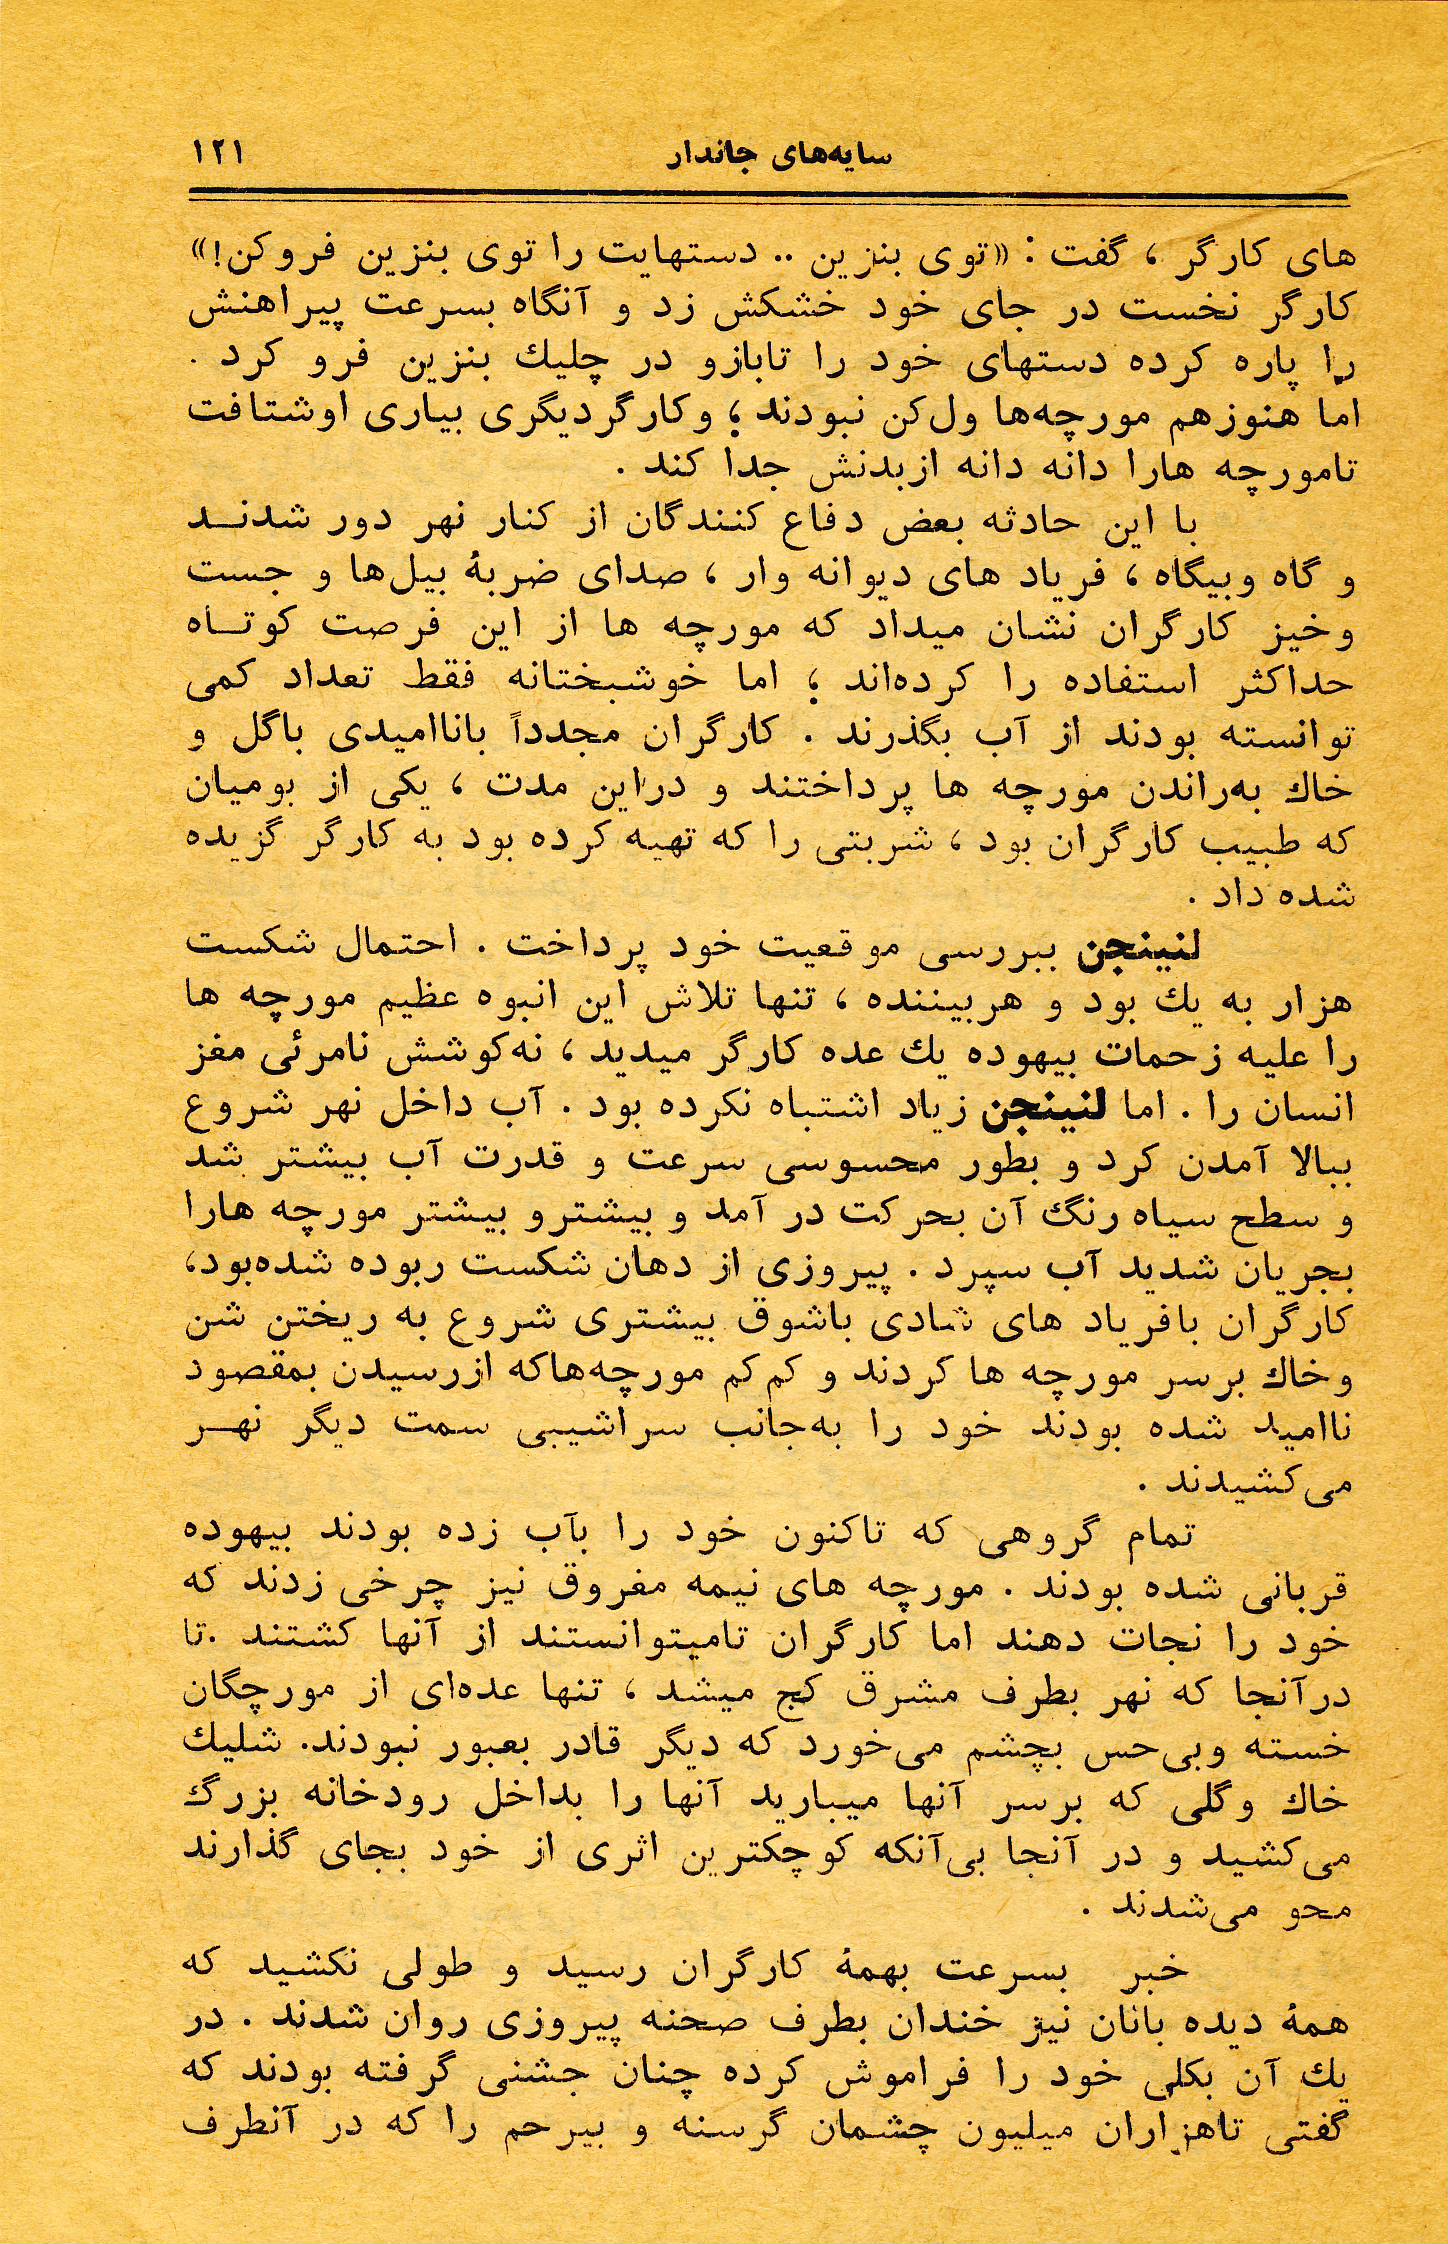 سایه‌های جاندار ۱۲۱
های کارگر ، گفت : «توی بنزین .. دستهایت را توی بنزین فروکن!»
کارگر نخست در جای خود خشکش زد و آنگاه بسرعت پیراهنش
را پاره کرده دستهای خود را تابازو در چلیك بنزین فرو کرد .
اما هنوزهم مورچه‌ها ول‌کن نبودند ؛ وکارگردیگری بیاری اوشتافت
تامورچه هارا دانه دانه ازبدنش جدا کند .
با این حادثه بعض دفاع کنندگان از کنار نهر دور شدنـد
و گاه وبیگاه ، فریاد های دیوانه وار ، صدای ضربهٔ بیل‌ها و جست
وخیز کارگران نشان میداد که مورچه ها از این فرصت کوتـاه
حداکثر استفاده را کرده‌اند ؛ اما خوشبختانه فقط تعداد کمی
توانسته بودند از آب بگذرند . کارگران مجدداً باناامیدی باگل و
خاك به‌راندن مورچه ها پرداختند و دراین مدت ، یکی از بومیان
که طبیب کارگران بود ، شربتی را که تهیه کرده بود به کارگر گزیده
شده داد .
لنینجن ببررسی موقعیت خود پرداخت . احتمال شکست
هزار به یك بود و هربیننده ، تنها تلاش این انبوه عظیم مورچه ها
را علیه زحمات بیهوده یك عده کارگر میدید ، نه‌کوشش نامرئی مغز
انسان را . اما لنینجن زیاد اشتباه نکرده بود . آب داخل نهر شروع
ببالا آمدن کرد و بطور محسوسی سرعت و قدرت آب بیشتر شد
و سطح سیاه رنگ آن بحرکت در آمد و بیشترو بیشتر مورچه هارا
بجریان شدید آب سپرد . پیروزی از دهان شکست ربوده شده‌بود،
کارگران بافریاد های شادی باشوق بیشتری شروع به ریختن شن
وخاك برسر مورچه ها کردند و کم‌کم مورچه‌هاکه ازرسیدن بمقصود
ناامید شده بودند خود را به‌جانب سراشیبی سمت دیگر نهـر
می‌کشیدند .
تمام گروهی که تاکنون خود را بآب زده بودند بیهوده
قربانی شده بودند . مورچه های نیمه مغروق نیز چرخی زدند که
خود را نجات دهند اما کارگران تامیتوانستند از آنها کشتند .تا
درآنجا که نهر بطرف مشرق کج میشد ، تنها عده‌ای از مورچگان
خسته وبی‌حس بچشم می‌خورد که دیگر قادر بعبور نبودند. شلیك
خاك وگلی که برسر آنها میبارید آنها را بداخل رودخانه بزرگ
می‌کشید و در آنجا بی‌آنکه کوچکترین اثری از خود بجای گذارند
محو می‌شدند .
خبر بسرعت بهمهٔ کارگران رسید و طولی نکشید که
همهٔ دیده بانان نیز خندان بطرف صحنه پیروزی روان شدند . در
یك آن بکلی خود را فراموش کرده چنان جشنی گرفته بودند که
گفتی تاهزاران میلیون چشمان گرسنه و بیرحم را که در آنطرف